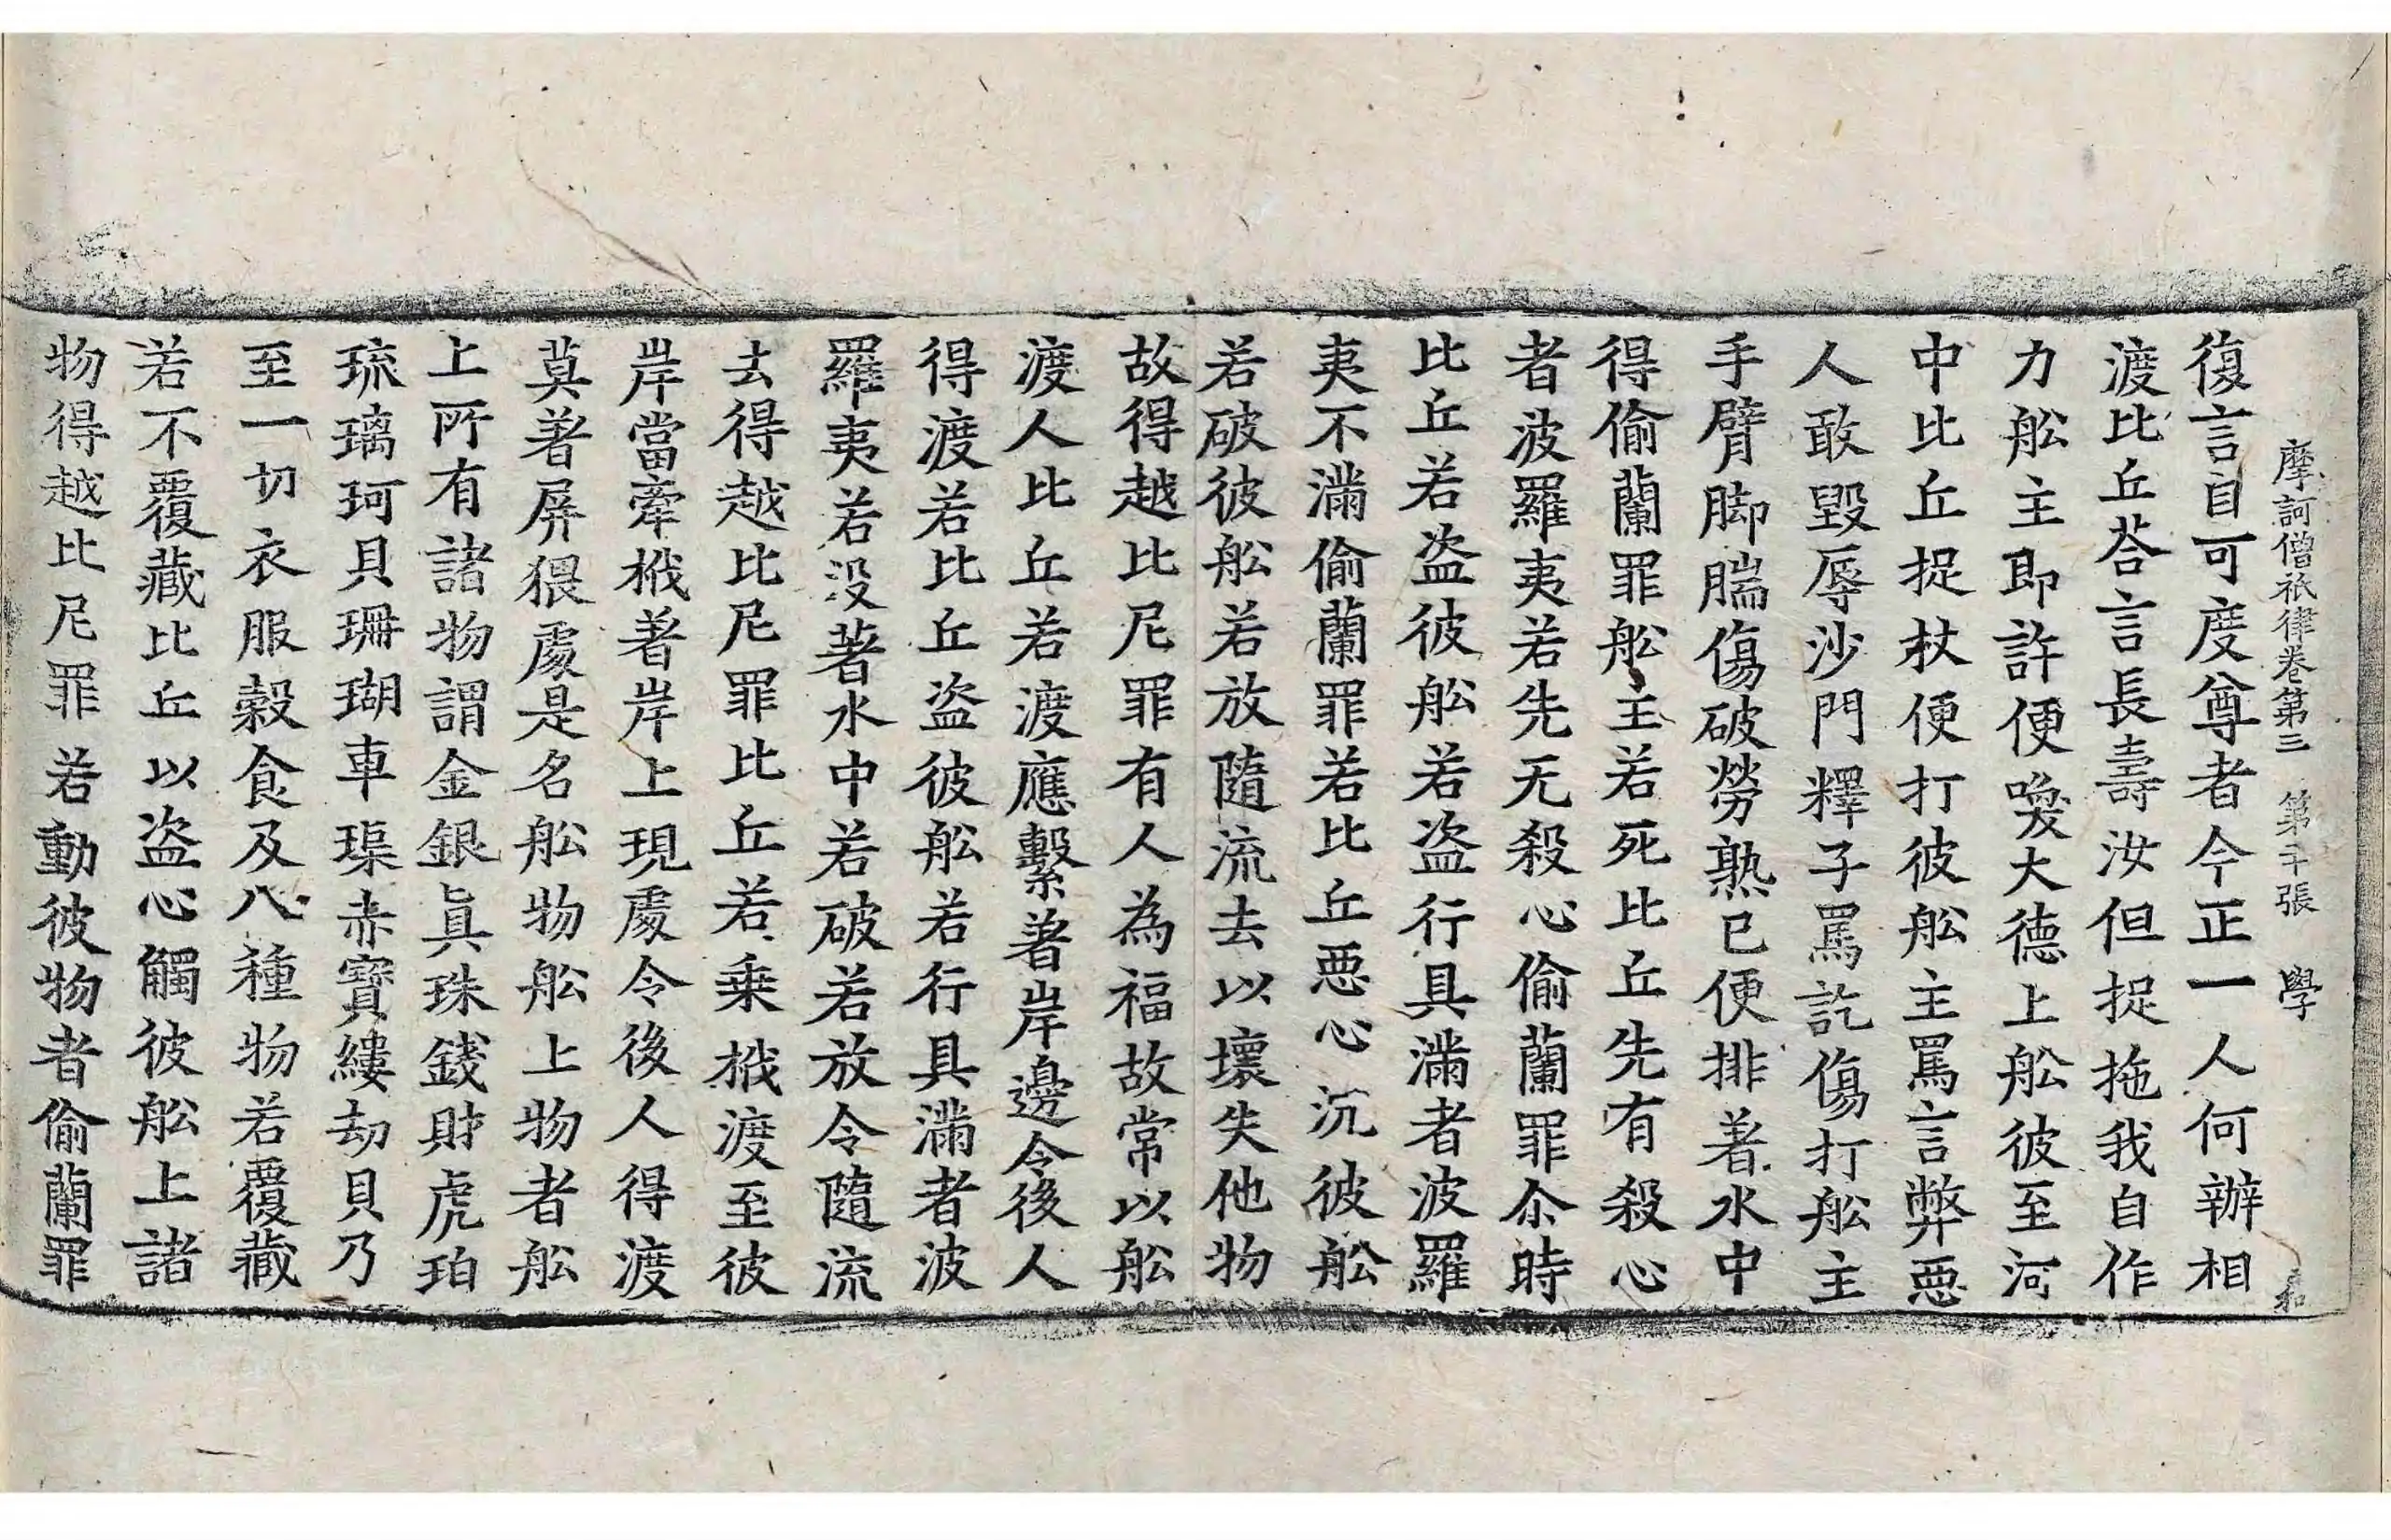 摩訶僧祇律卷第三 第二十張 學
復言自可度尊者今正一人何辦相
渡比丘荅言長壽汝但捉拖我自作
力舩主即許便喚大德上舩彼至河
中比丘捉杖便打彼舩主罵言弊惡
人敢毀辱沙門釋子罵訖傷打舩主
手臂脚腨傷破勞熟已便排著水中
得偷蘭罪舩主若死比丘先有殺心
者波羅夷若先无殺心偷蘭罪尒時
比丘若盗彼舩若盗行具滿者波羅
夷不滿偷蘭罪若比丘惡心沉彼舩
若破彼舩若放隨流去以壞失他物
故得越比尼罪有人為福故常以舩
渡人比丘若渡應繫著岸邊令後人
得渡若比丘盗彼舩若行具滿者波
羅夷若没著水中若破若放令隨流
去得越比尼罪比丘若乗栰渡至彼
岸當牽栰著岸上現處令後人得渡
莫著屏猥處是名舩物舩上物者舩
上所有諸物謂金銀眞珠錢財虎珀
琉璃珂貝珊瑚車璖赤寳縷劫貝乃
至一切衣服穀食及八種物若覆藏
若不覆藏比丘以盗心觸彼舩上諸
物得越比尼罪若動彼物者偷蘭罪